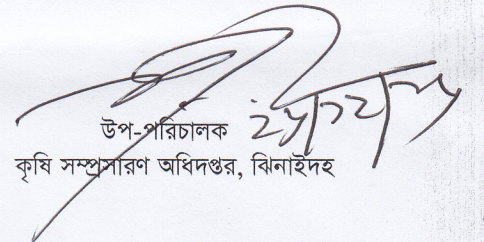 উপ-পরিচালক
কৃষি সম্প্রসারণ অধিদপ্তর, ঝিনাইদহ